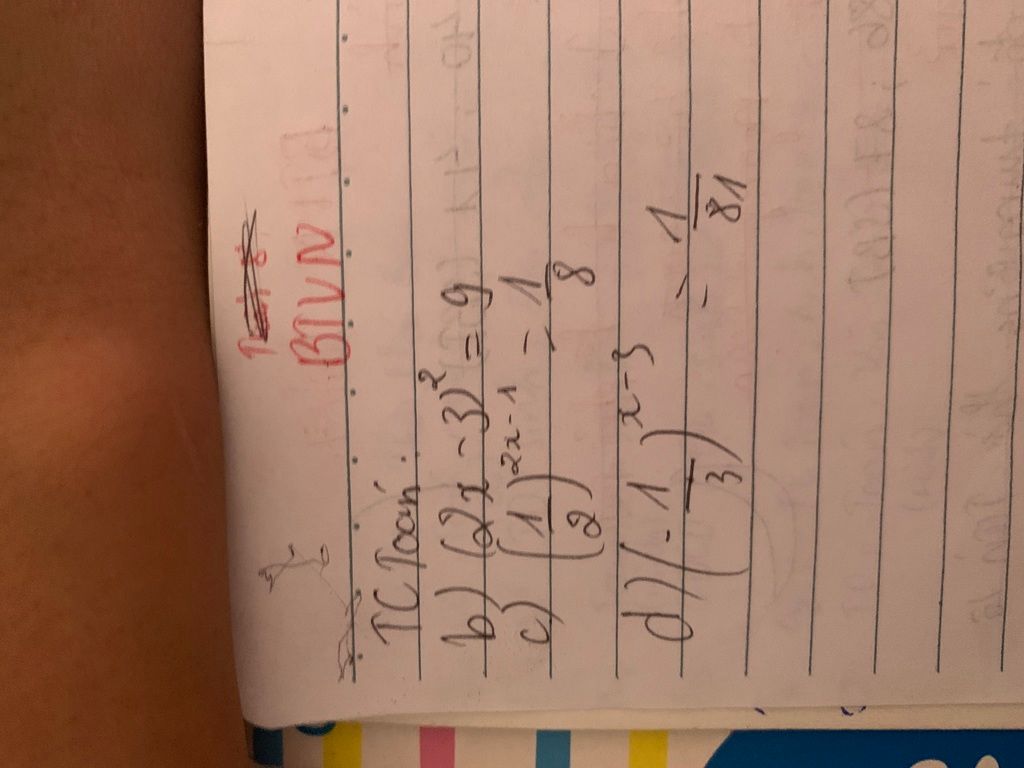 BTVN
TC Toán:
b) (2x - 3)² = 9
c) (1/2)^(2x-1) = 1/8
d) (-1/3)^(x-3) = 1/81